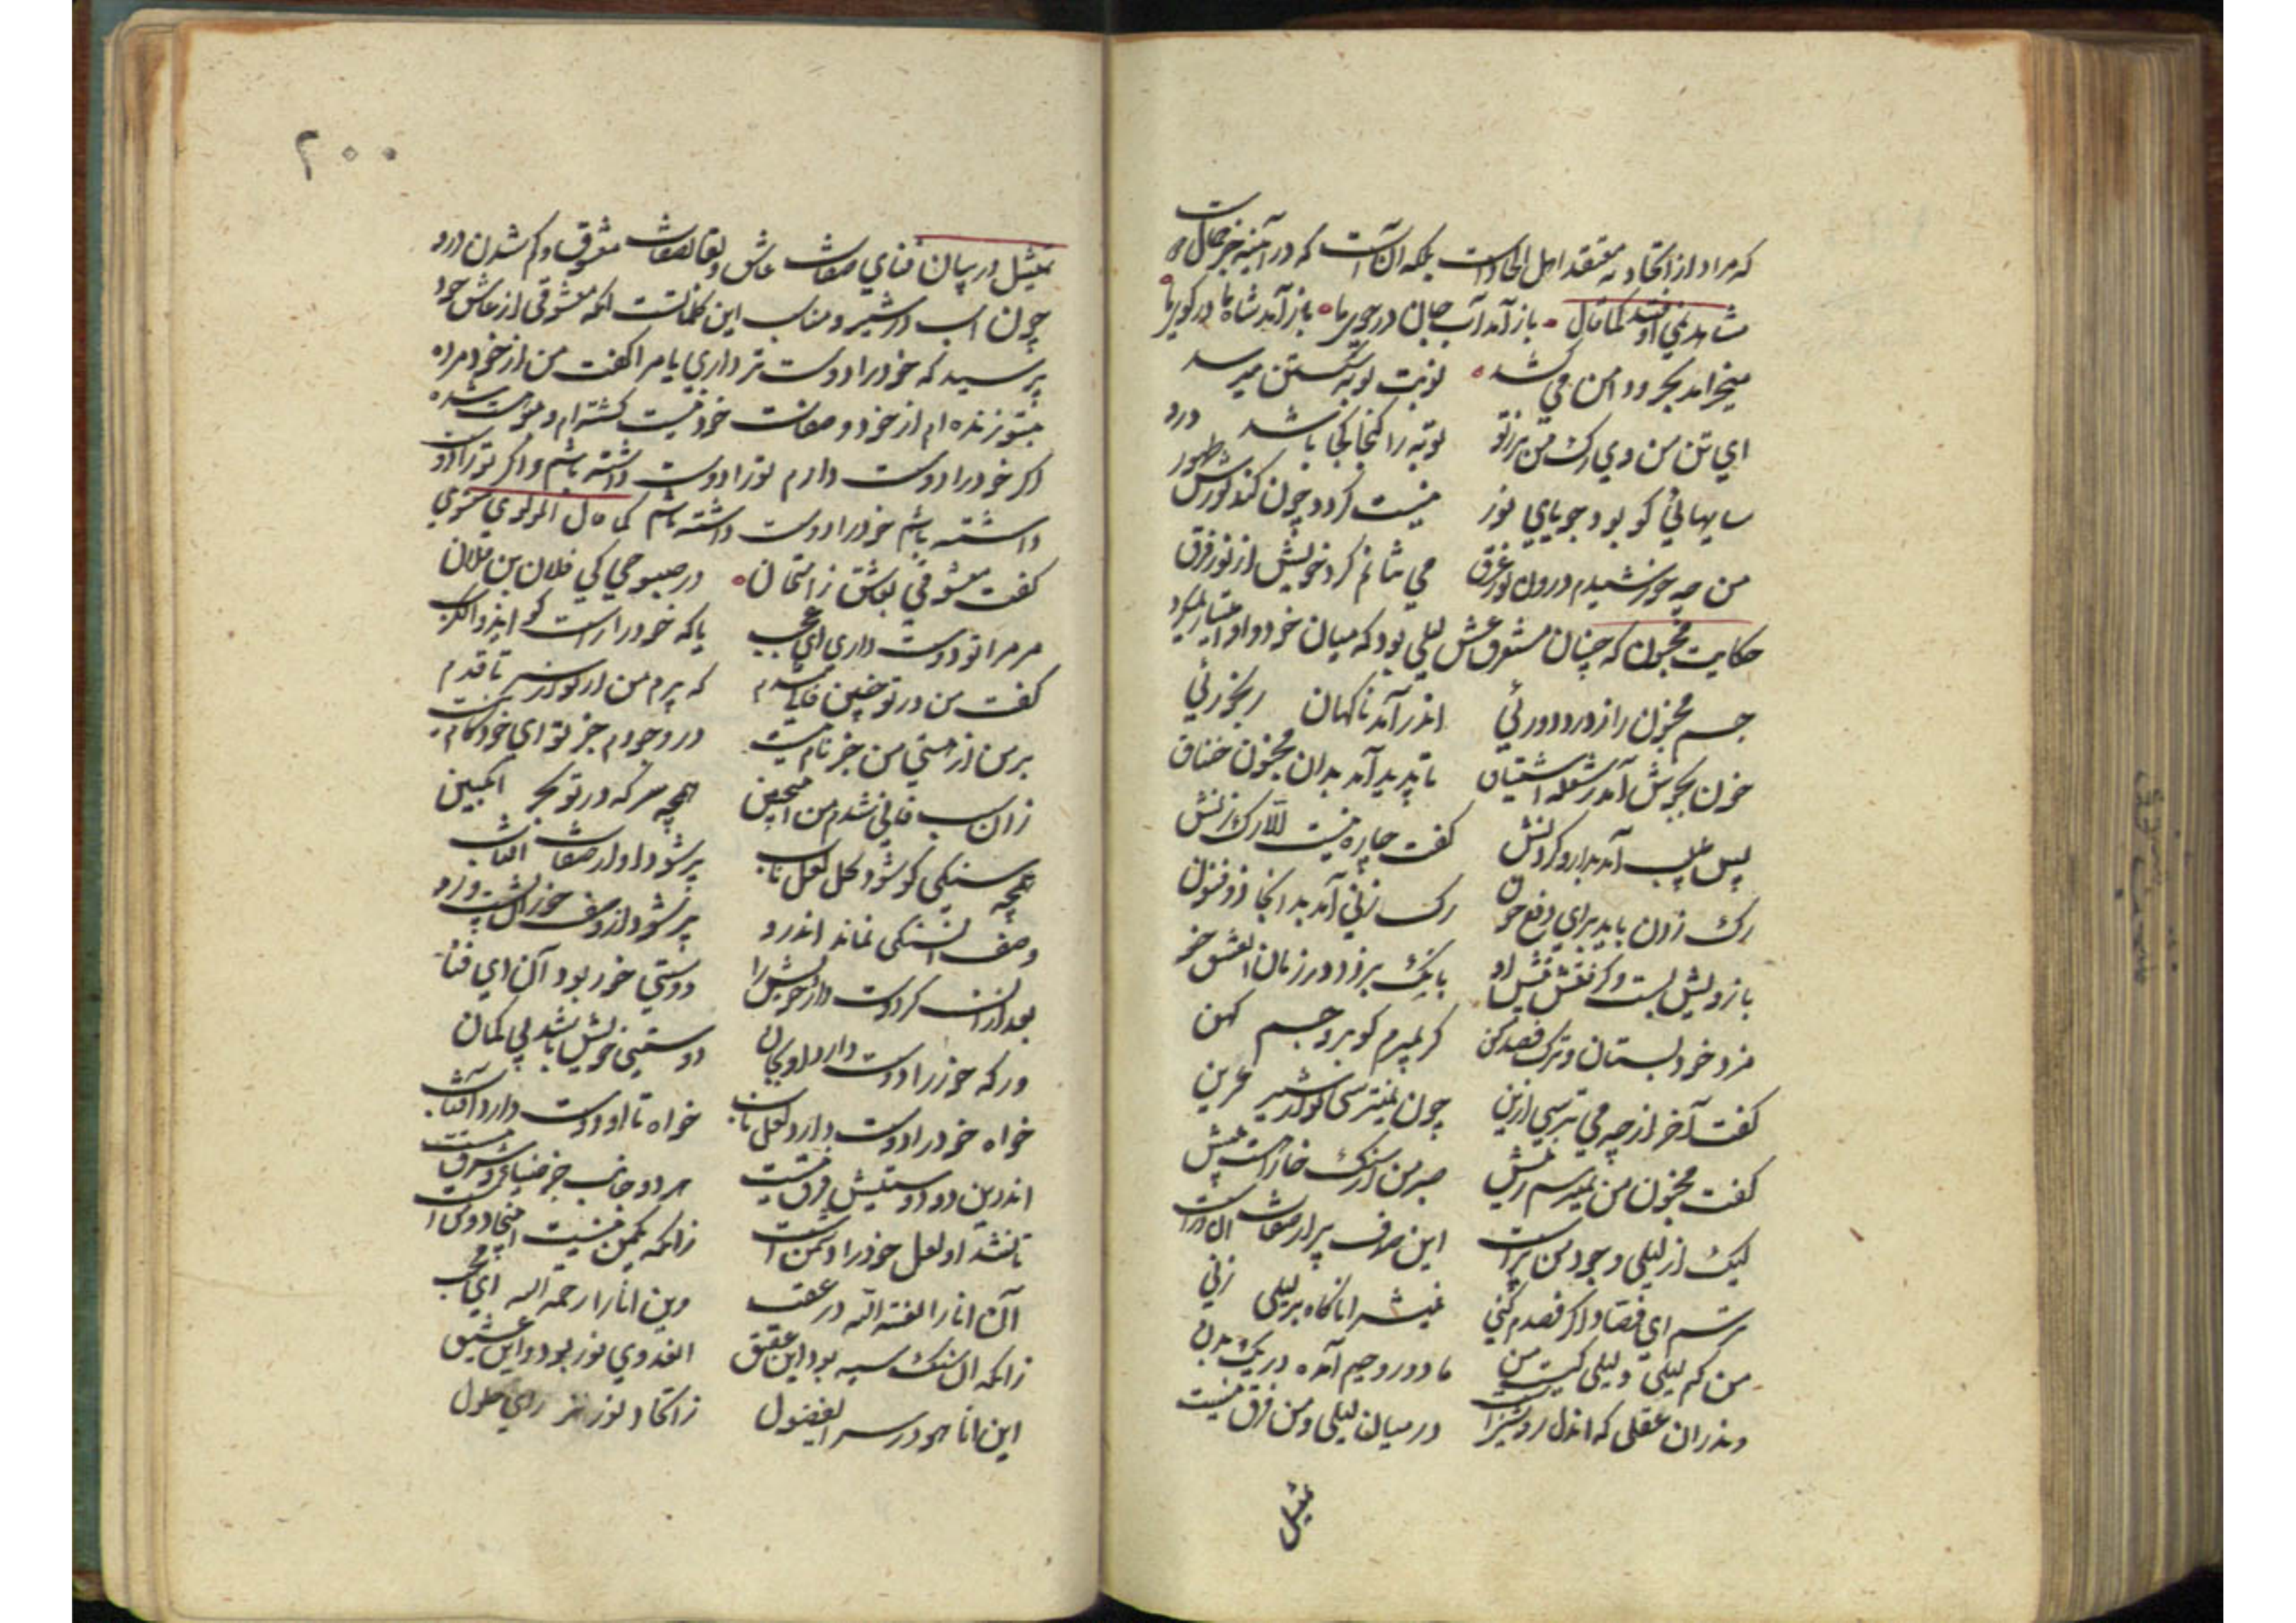 که مراد از اتحاد نه معتقد اهل الحادست بلکه آن است که در آینه جز جمال
مشاهد نمی افتد کما قال باز آمد آب جان در جوی ما باز آمد شاه ما در کوی ما
میخرامد بحر و دامن می کشد نوبت توبه شکستن میرسد
ای تن من وی رگ من پر ز تو توبه را گنجا کجا باشد درو
سایهائی کو بود جویای نور نیست گردد چون کند نورش ظهور
من چه خورشیدم درون نور غرق می ندانم کرد خویش از نور فرق
حکایت مجنون که چنان مستغرق عشق لیلی بود که میان خود و او امتیاز نمیکرد
جسم مجنون را ز درد دورئی اندر آمد ناکهان رنجورئی
خون بجوش آمد ز شعله اشتیاق تا پدید آمد بدان مجنون خناق
پس طبیب آمد بدارو کردنش گفت چاره نیست الا رک زنش
رک زدن باید برای دفع خون رک زنی آمد بدانجا ذو فنون
بازویش بست و کرفت آن نیش او بانک بر زد در زمان آن عشق خو
مزد خود بستان و ترک فصد کن گر بمیرم کو برو جسم کهن
گفت آخر از چه می ترسی ازین چون نمیترسی تو از شیر عرین
گفت مجنون من نمیترسم ز نیش صبر من از سنک خارا هست بیش
لیک از لیلی وجود من پر است این صدف پر از صفات آن در است
ترسم ای فصاد اکر فصدم کنی نیش را ناکاه بر لیلی زنی
من کیم لیلی و لیلی کیست من ما دو روحیم آمده در یک بدن
داند آن عقلی که آن دل روشنیست در میان لیلی و من فرق نیست
تمثیل
۲۰۰
تمثیل در بیان فنای صفات عاشق و بقا بصفات معشوق و کم شدن درو
چون آب در شیر و مناسب این کلمات است آنکه معشوقی از عاشق خود
پرسید که خود را دوست تر داری یا مرا گفت من از خود مرده
بتو زنده ام از خود و صفات خود نیست گشته ام و بتو هست شده
اگر خود را دوست دارم تو را دوست داشته باشم و اگر تو را دوست
داشته باشم خود را دوست داشته باشم کما قال المولوی معنوی
گفت معشوقی بعاشق ز امتحان در صبوحی کی فلان بن فلان
مر مرا تو دوست داری ای عجب یا که خود را راست گو
گفت من در تو چنین فانی شدم که پرم من از تو از سر تا قدم
بر من از هستی من جز نام نیست در وجودم جز تو ای خوش کام نیست
زان سبب فانی شدم من این چنین همچو سرکه در تو بحر انکبین
همچو سنگی کو شود کل لعل ناب پر شود او از صفات آفتاب
وصف آن سنگی نماند اندرو پر شود از وصف خور آن پشت و رو
بعد از آن گر دوست دارد خویش را دوستی خور بود آن ای فتا
ور که خور را دوست دارد او بجان دوستی خویش باشد بی گمان
خواه خود را دوست دارد لعل ناب خواه تا او دوست دارد آفتاب
اندرین دو دوستیش فرق نیست هر دو جانب جز ضیای شرق نیست
تا نشد او لعل خود را دشمن است زانکه یک من نیست اینجا دو من است
آن انا را لعنة الله در عقب وین انا را رحمة الله ای محب
زانکه آن سنک سیه بود این عقیق آن عدوی نور بود و این عشیق
این انا هو در سر ای فضول ز اتحاد نور نز رای حلول